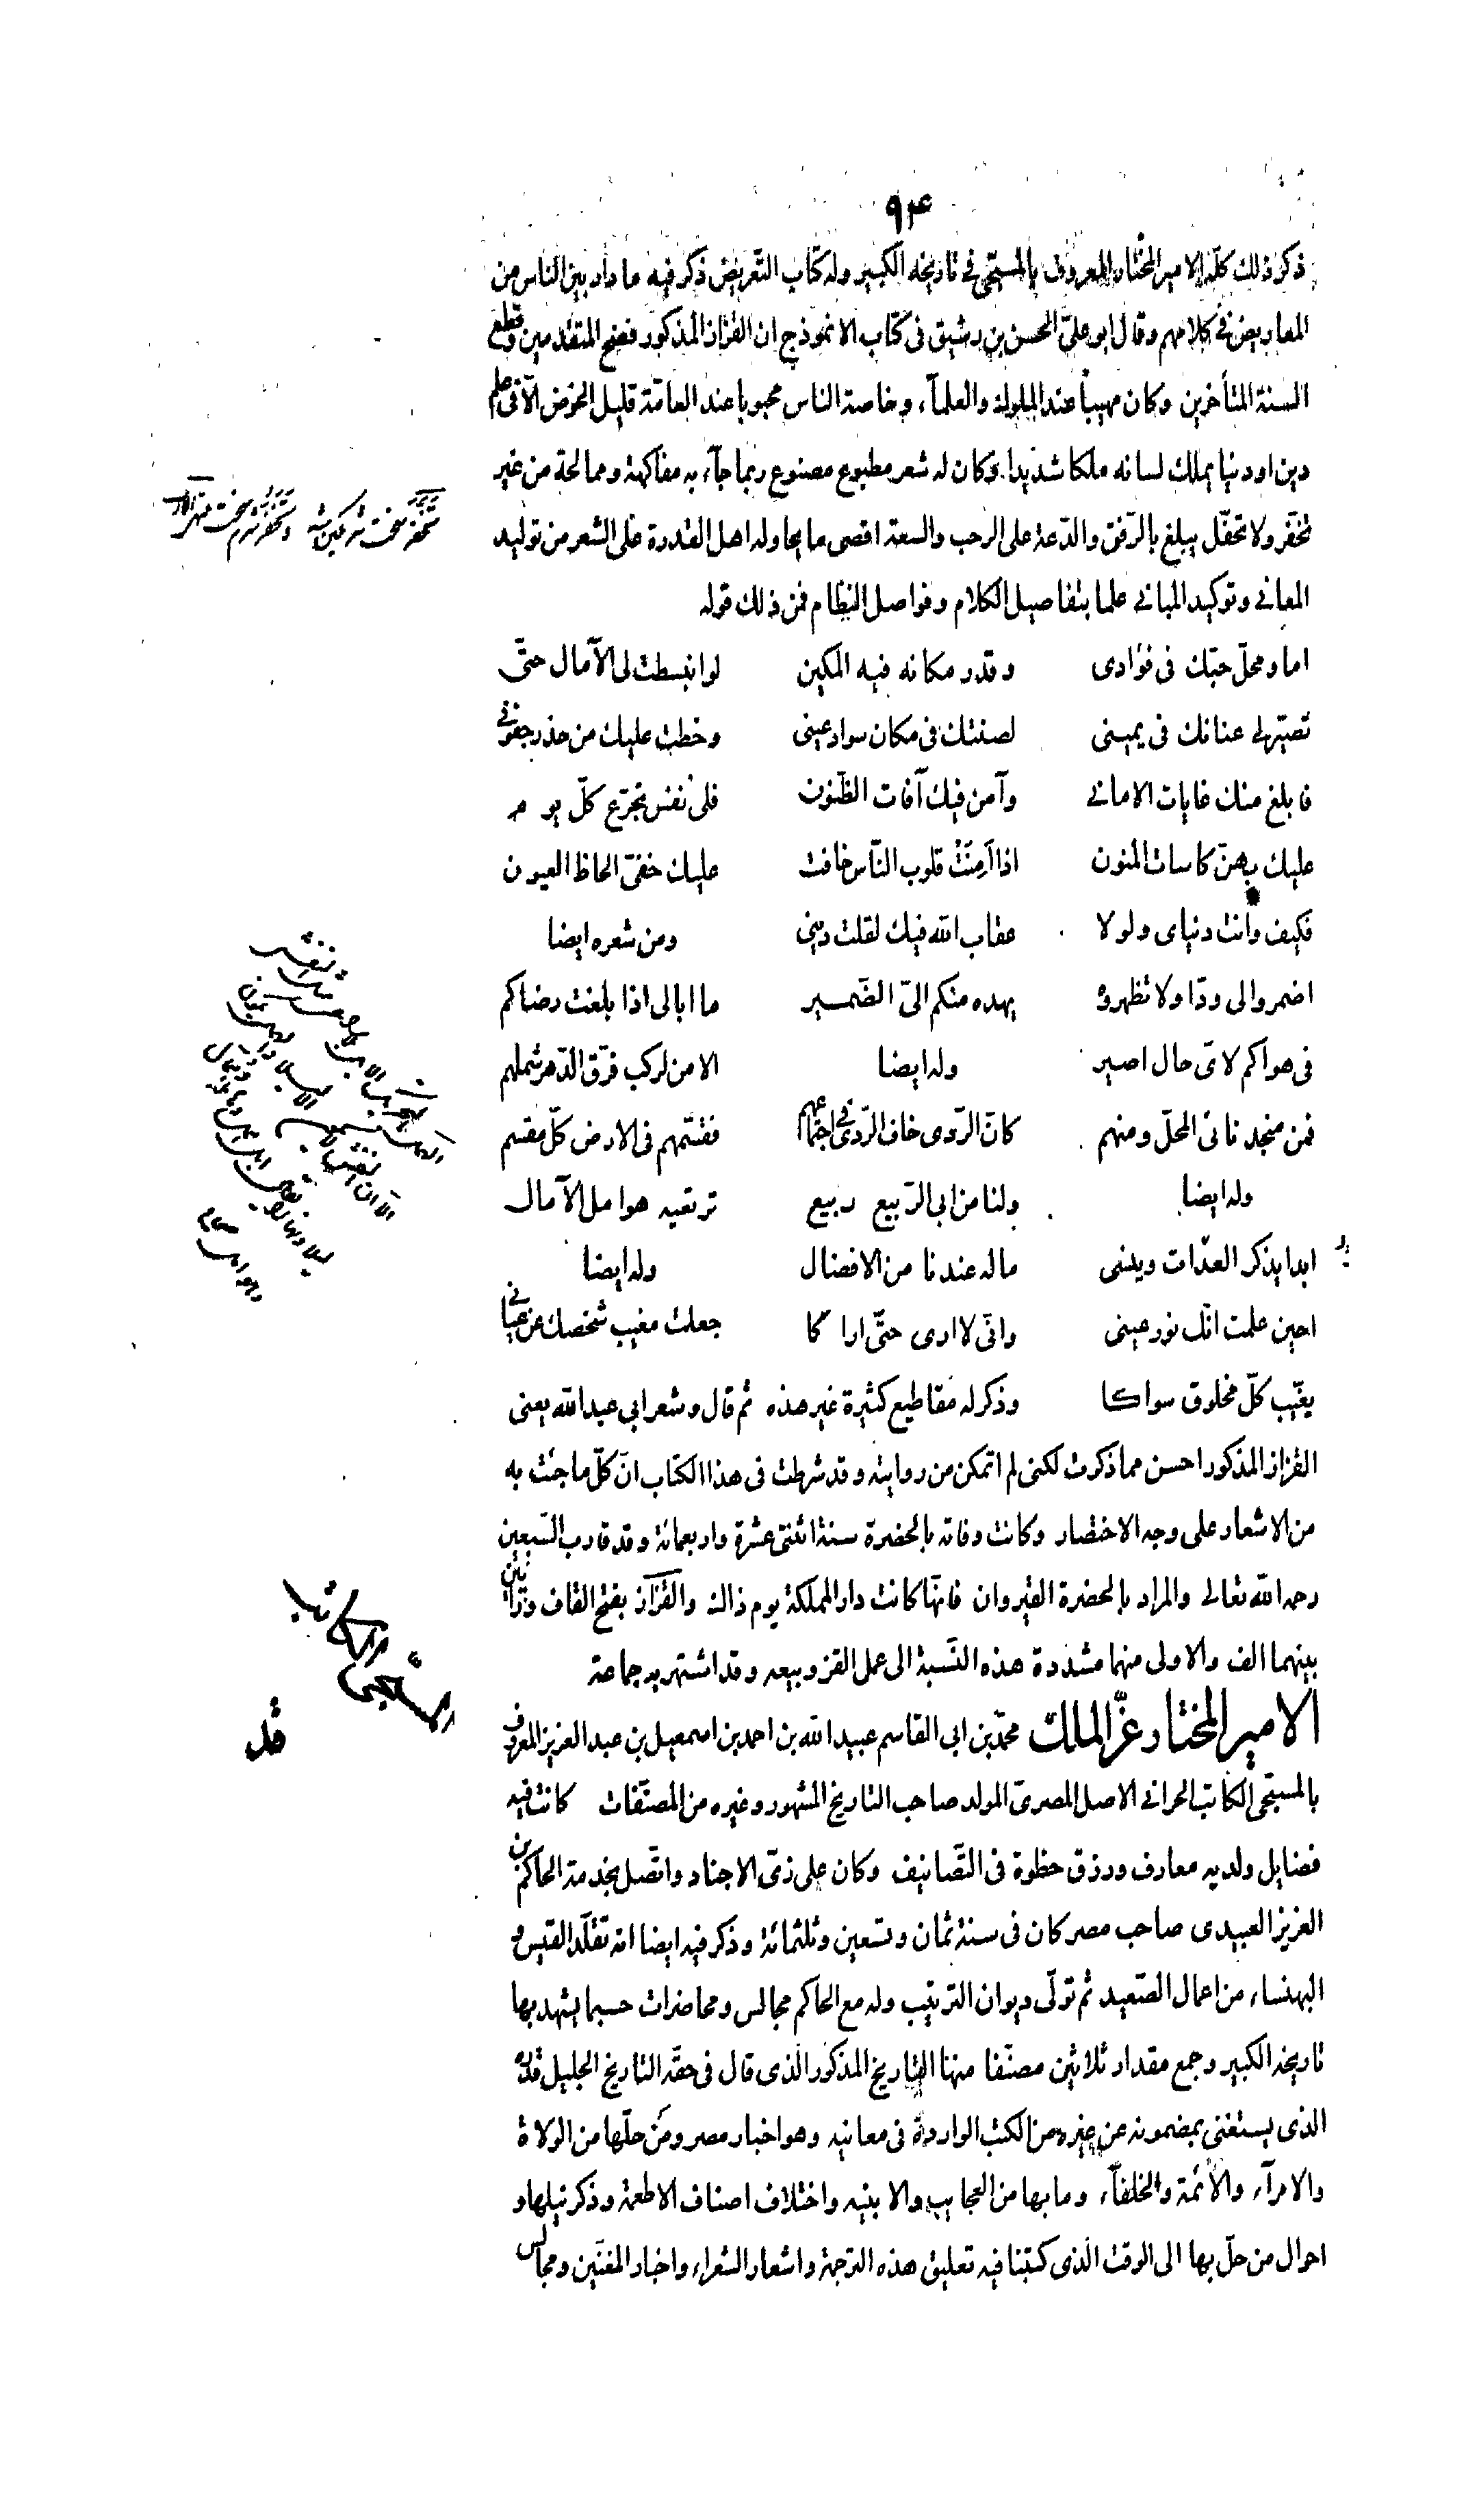 ٩٤
ذكر ذلك كله الامير المختار المعروف بالمسبّحى فى تاريخه الكبير وله كتاب التّعريض ذكر فيه ما دار بين الناس من
المعاريض فى كلامهم وقال ابو علىّ الحسن بن رشيق فى كتاب الانموذج ان القزاز المذكور فضح المتقدمين وقطع
السنة المتأخرين وكان مهيباً عند الملوك والعلمآء وخاصة الناس محبوبا عند العامّة قليل الخوض الّا فى علم
دين او دنيا يملك لسانه ملكا شديدا وكان له شعر مطبوع مصنوع ربما جآء به مفاكهة وممالحة من غير
تحفّز ولا تحفّل يبلغ بالرّفق والدّعة على الرحب والسعة اقصى ما يحاوله اهل القدرة على الشعر من توليد
المعانى وتوكيد المبانى علما بتفاصيل الكلام وفواصل النظام فمن ذلك قوله
اما ومحلّ حبّك فى فؤادى وقدر مكانه فيه المكين لو انبسطت لى الآمال حتّى
تصيّر لى عنانك فى يمينى لصنتك فى مكان سواد عينى وخطت عليك من حذر جفونى
فابلغ منك غايات الامانى وآمن فيك آفات الظّنون فلى نفس تجرّع كلّ يو م
عليك بهنّ كاسات المنون اذا اَمِنَتْ قلوب النّاس خافت عليك خفىّ الحاظ العيون
فكيف وانت دنياى ولولا عقاب الله فيك لقلت دينى ومن شعره ايضا
اضمروا لى ودّا ولا تظهروه يهده منكم الىّ الضّمير ما ابالى اذا بلغت رضاكم
فى هواكم لاىّ حال اصير وله ايضا الا من لركب فرّق الدّهر شملهم
فمن منجد نائى المحلّ ومتهم كانّ الرّدى خاف الرّدى فى اجتماعهم فقسّمهم فى الارض كلّ مقسم
وله ايضا ولنا من ابى الرّبيع ربيع ترتعيه هوامل الآمال
ابدا يذكر العدّات وينسى ماله عندنا من الافضال وله ايضا
احين علمت انّك نور عينى وانّى لا ارى حتّى اراكا جعلت مغيب شخصك عن عيانى
يغيّب كلّ مخلوق سواكا وذكر له مقاطيع كثيرة غير هذه ثم قال وشعر ابى عبد الله يعنى
القزاز المذكور احسن مما ذكرت لكنى لم اتمكن من روايته وقد شرطت فى هذا الكتاب انّ كلّ ما جئت به
من الاشعار على وجه الاختصار وكانت وفاته بالحضرة سنة اثنتى عشرة واربعمائة وقد قارب السّبعين
رحمه الله تعالى والمراد بالحضرة القيروان فانّها كانت دار المملكة يوم ذاك والقزّاز بفتح القاف وزائين
بينهما الف والاولى منهما مشددة هذه النّسبة الى عمل القز وبيعه وقد اشتهر به جماعة
الامير المختار عزّ الملك محمّد بن ابى القاسم عبيد الله بن احمد بن اسمعيل بن عبد العزيز المعروف
بالمسبّحى الكاتب الحرانى الاصل المصرىّ المولد صاحب التاريخ المشهور وغيره من المصنّفات كانت فيه
فضايل ولديه معارف ورزق حظوة فى التّصانيف وكان على زىّ الاجناد واتّصل بخدمة الحاكم بن
العزيز العبيدى صاحب مصر كان فى سنة ثمان وتسعين وثلثمائة وذكر فيه ايضا انه تقلّد القيس و
البهنساء من اعمال الصّعيد ثم تولّى ديوان الترتيب وله مع الحاكم مجالس ومحاضرات حسبما يشهد بها
تاريخه الكبير وجمع مقدار ثلاثين مصنّفا منها التاريخ المذكور الّذى قال فى حقّه التاريخ الجليل قدره
الذى يستغنى بمضمونه عن غيره من الكتب الواردة فى معانيه وهو اخبار مصر ومن حلّها من الولاة
والامرآء والأئمّة والخلفآء وما بها من العجايب والابنيه واختلاف اصناف الاطعمة وذكر نيلها و
احوال من حلّ بها الى الوقت الّذى كتبنا فيه تعليق هذه الترجمة واشعار الشعراء واخبار المغنّين ومجالس
المسبّحى
الكاتب